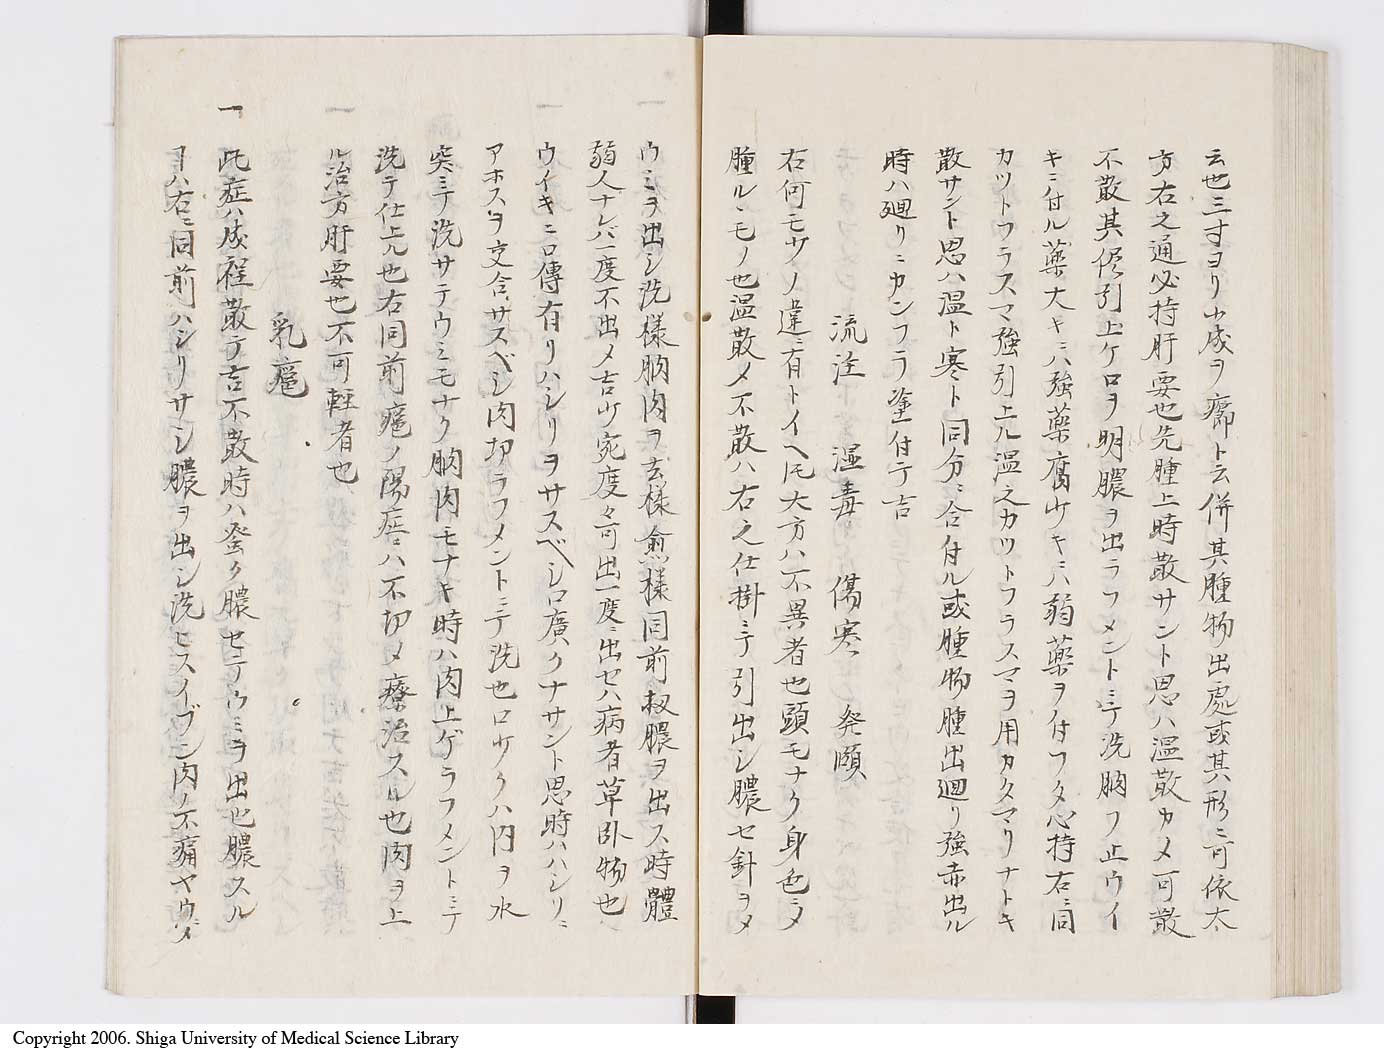 云也三寸ヨリ小成ヲ癤ト云併其腫物出處或其形ニ可依太
方右之通必持肝要也先腫上時散サント思ハ温散カメ可散
不散其侭引上ケ口ヲ明膿ヲ出ラフメントミテ洗胸フ止ウイ
キニ付ル薬大キニハ強薬腐少キニハ弱薬ヲ付フタ心持右ニ同
カツトフラスマ強引上ル温之カツトフラスマヲ用カタマリナトキ
散サント思ハ温ト寒ト同分ニ合付ル或腫物腫出廻リ強赤出ル
時ハ廻リニカンフラ塗付テ吉
流注 湿毒 傷寒 発頤
右何モサノ違ニ有トイヘ𪜈大方ハ不異者也頭モナク身色ニメ
腫ルヽモノ也温散メ不散ハ右之仕掛ニテ引出シ膿セ針ヲメ
ウミヲ出シ洗様胸肉ヲ去様愈様同前扨膿ヲ出ス時體
弱人ナレバ一度不出メ吉少宛度々可出一度ニ出セハ病者草臥物也
ウイキニ口傳有リハシリヲサスベシ口廣クナサント思時ハハシリニ
アホスヲ交合サスベシ肉切ラフメントニテ洗也口サクハ内ヲ水
突ミテ洗サテウミモナク胸肉モナキ時ハ肉上ゲラフメントミテ
洗テ仕上ル也右同前瘡ノ陽症ニハ不切メ療治スル也肉ヲ上
ル治方肝要也不可軽者也
乳瘡
一 此症ハ成程散テ吉不散時ハ発ク膿セテウミヲ出也膿スル
ヿハ右ニ同前ハシリサシ膿ヲ出シ洗ヒスイブン肉ノ不痛ヤウニメ